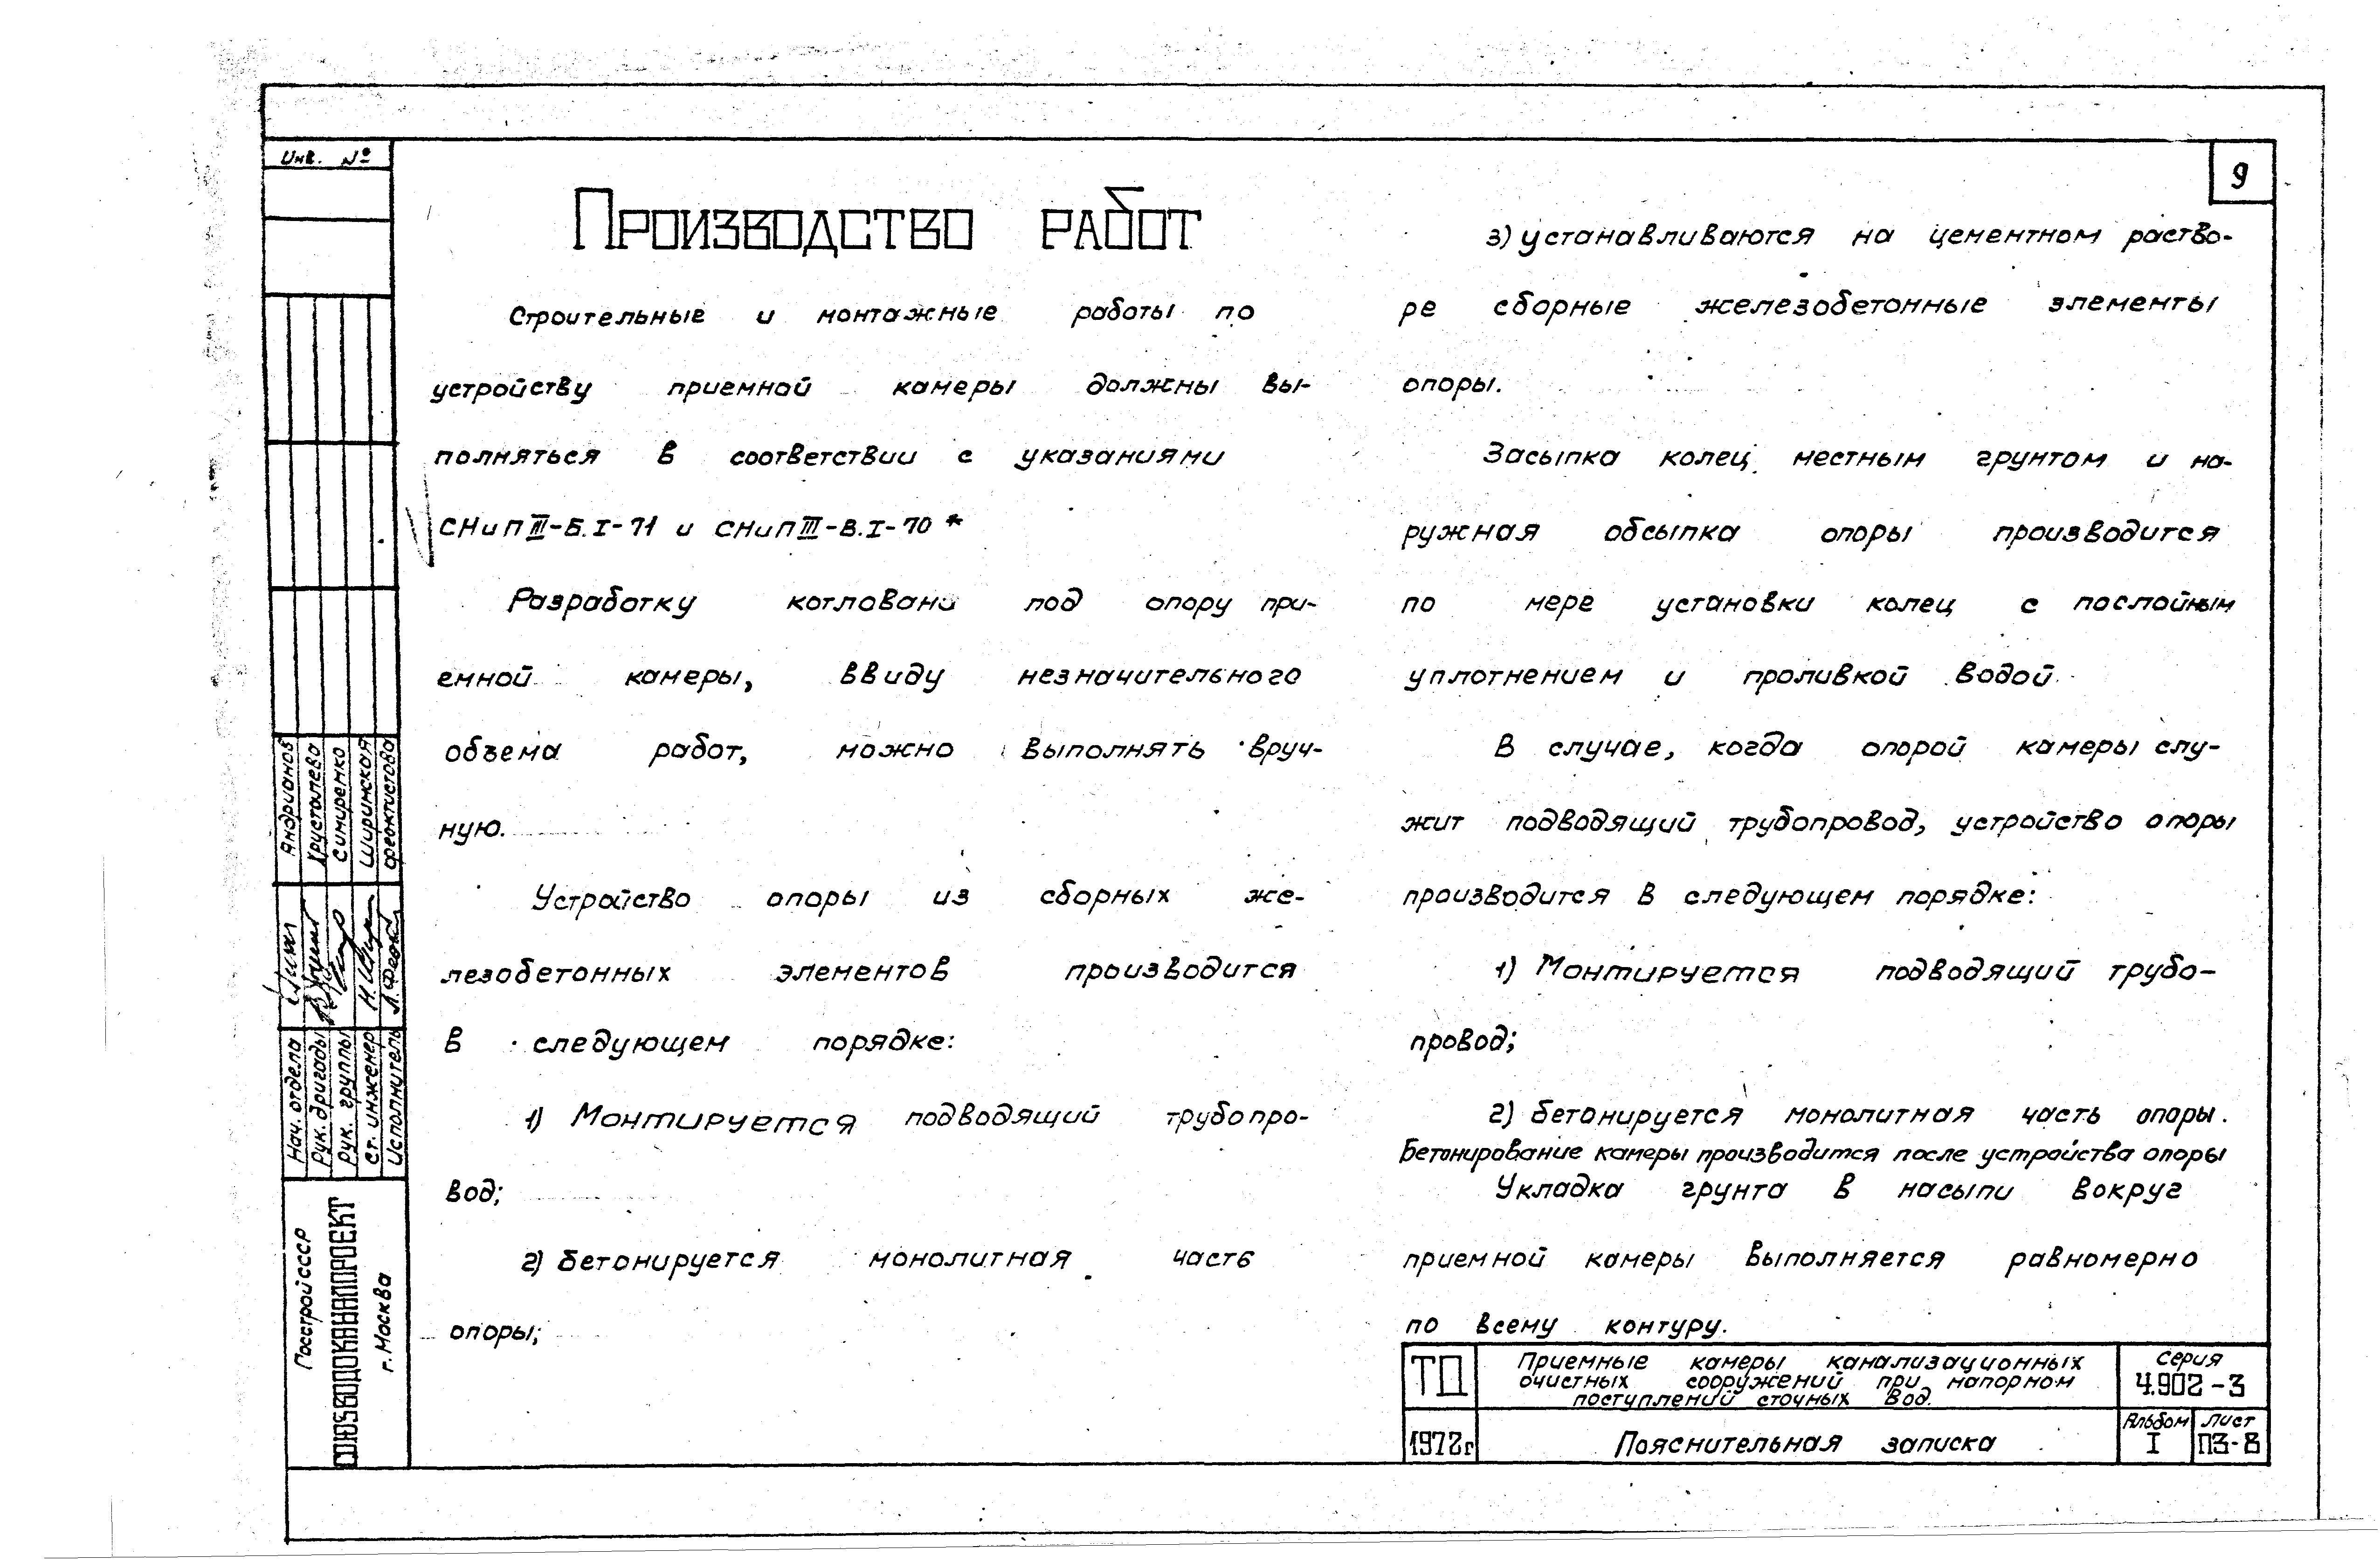 Инв. №
9
Производство работ
Строительные и монтажные работы по
устройству приемной камеры должны вы-
полняться в соответствии с указаниями
СНиП III-Б.I-71 и СНиП III-В.I-70*
Разработку котловани под опору при-
емной камеры, ввиду незначительного
объема работ, можно выполнять вруч-
ную.
Устройство опоры из сборных же-
лезобетонных элементов производится
в следующем порядке:
1) Монтируется подводящий трубопро-
вод;
2) Бетонируется монолитная часть
опоры;
3) устанавливаются на цементном раство-
ре сборные железобетонные элементы
опоры.
Засыпка колец местным грунтом и на-
ружная обсыпка опоры производится
по мере установки колец с послойным
уплотнением и проливкой водой.
В случае, когда опорой камеры слу-
жит подводящий трубопровод, устройство опоры
производится в следующем порядке:
1) Монтируется подводящий трубо-
провод;
2) Бетонируется монолитная часть опоры.
Бетонирование камеры производится после устройства опоры
Укладка грунта в насыпи вокруг
приемной камеры выполняется равномерно
по всему контуру.
Нач. отдела Андрианов
Рук. бригады Хрусталева
Рук. группы Симиренко
Ст. инженер Н. Шир Ширинская
Исполнитель Л. Феокт Феоктистова
Госстрой СССР
СОЮЗВОДОКАНАЛПРОЕКТ
г. Москва
ТП
Приемные камеры канализационных
очистных сооружений при напорном
поступлений сточных вод.
Серия
4.902-3
1972г
Пояснительная записка
Альбом
I
Лист
ПЗ-8